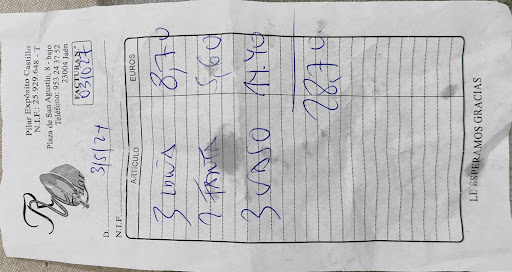 Pilar Expósito Castillo
N.I.F.: 25.929.648 - T
Plaza de San Agustín, 8 - bajo
Teléfono: 953 24 37 52
23004 Jaén
FACTURA Nº
031027
D. 3/5/24
N.I.F.
ARTÍCULO EUROS
3 8,70
2 FANTA 5,60
3 VASO 14.40
28,70
LE ESPERAMOS GRACIAS